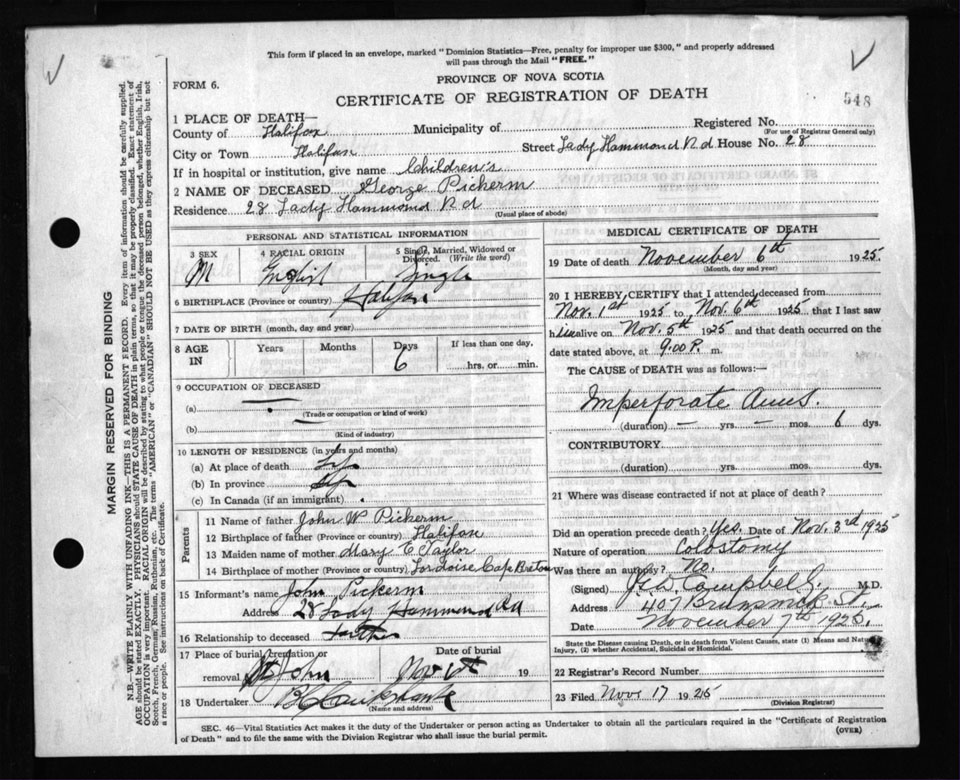 This form if placed in an envelope, marked "Dominion Statistics—Free, penalty for improper use $300," and properly addressed
will pass through the Mail "FREE."
PROVINCE OF NOVA SCOTIA
FORM 6.
CERTIFICATE OF REGISTRATION OF DEATH
548
1 PLACE OF DEATH—
Registered No.
(For use of Registrar General only)
County of Halifax Municipality of
City or Town Halifax Street Lady Hammond Rd House No. 28
If in hospital or institution, give name Children's
2 NAME OF DECEASED George Pickerm
Residence 28 Lady Hammond Rd
(Usual place of abode)
PERSONAL AND STATISTICAL INFORMATION
3 SEX 4 RACIAL ORIGIN 5 Single, Married, Widowed or
Divorced. (Write the word)
M English Single
6 BIRTHPLACE (Province or country) Halifax
7 DATE OF BIRTH (month, day and year)
8 AGE IN Years Months Days If less than one day.
6 hrs. or min.
9 OCCUPATION OF DECEASED
(a)
(Trade or occupation or kind of work)
(b)
(Kind of industry)
10 LENGTH OF RESIDENCE (in years and months)
(a) At place of death Life
(b) In province Life
(c) In Canada (if an immigrant)
Parents
11 Name of father John W Pickerm
12 Birthplace of father (Province or country) Halifax
13 Maiden name of mother Mary C Taylor
14 Birthplace of mother (Province or country) Cape Breton
15 Informant's name John Pickerm
Address 28 Lady Hammond Rd
16 Relationship to deceased Father
17 Place of burial, cremation or Date of burial
removal St John Nov 19
18 Undertaker
(Name and address)
MEDICAL CERTIFICATE OF DEATH
19 Date of death November 6th 1925.
(Month, day and year)
20 I HEREBY CERTIFY that I attended deceased from
Nov. 1st 1925 to Nov. 6th 1925 that I last saw
h alive on Nov. 5th 1925 and that death occurred on the
date stated above, at 9.00 P. m.
The CAUSE of DEATH was as follows:—
Imperforate Anus.
(duration) — yrs. — mos. 6 dys.
CONTRIBUTORY
(duration) yrs. mos. dys.
21 Where was disease contracted if not at place of death?
Did an operation precede death? Yes. Date of Nov. 3rd 1925
Nature of operation Colostomy
Was there an autopsy? No.
(Signed) Campbell M.D.
Address 407 Brunswick St.
Date November 7th 1925.
State the Disease causing Death, or in death from Violent Causes, state (1) Means and Nature of
Injury, (2) whether Accidental, Suicidal or Homicidal.
22 Registrar's Record Number
23 Filed Nov. 17 1925
(Division Registrar)
SEC. 46—Vital Statistics Act makes it the duty of the Undertaker or person acting as Undertaker to obtain all the particulars required in the "Certificate of Registration
of Death" and to file the same with the Division Registrar who shall issue the burial permit.
(OVER)
MARGIN RESERVED FOR BINDING
N.B.—WRITE PLAINLY WITH UNFADING INK—THIS IS A PERMANENT RECORD. Every item of information should be carefully supplied.
AGE should be stated EXACTLY. PHYSICIANS should STATE CAUSE OF DEATH in plain terms, so that it may be properly classified. Exact statement of
OCCUPATION is very important. RACIAL ORIGIN will be described by stating to what people or tongue the deceased person belonged, whether English, Irish,
Scotch, French, German, Russian, Ruthenian, etc. The terms "AMERICAN" or "CANADIAN" SHOULD NOT BE USED as they express citizenship but not
a race or people. See instructions on back of Certificate.